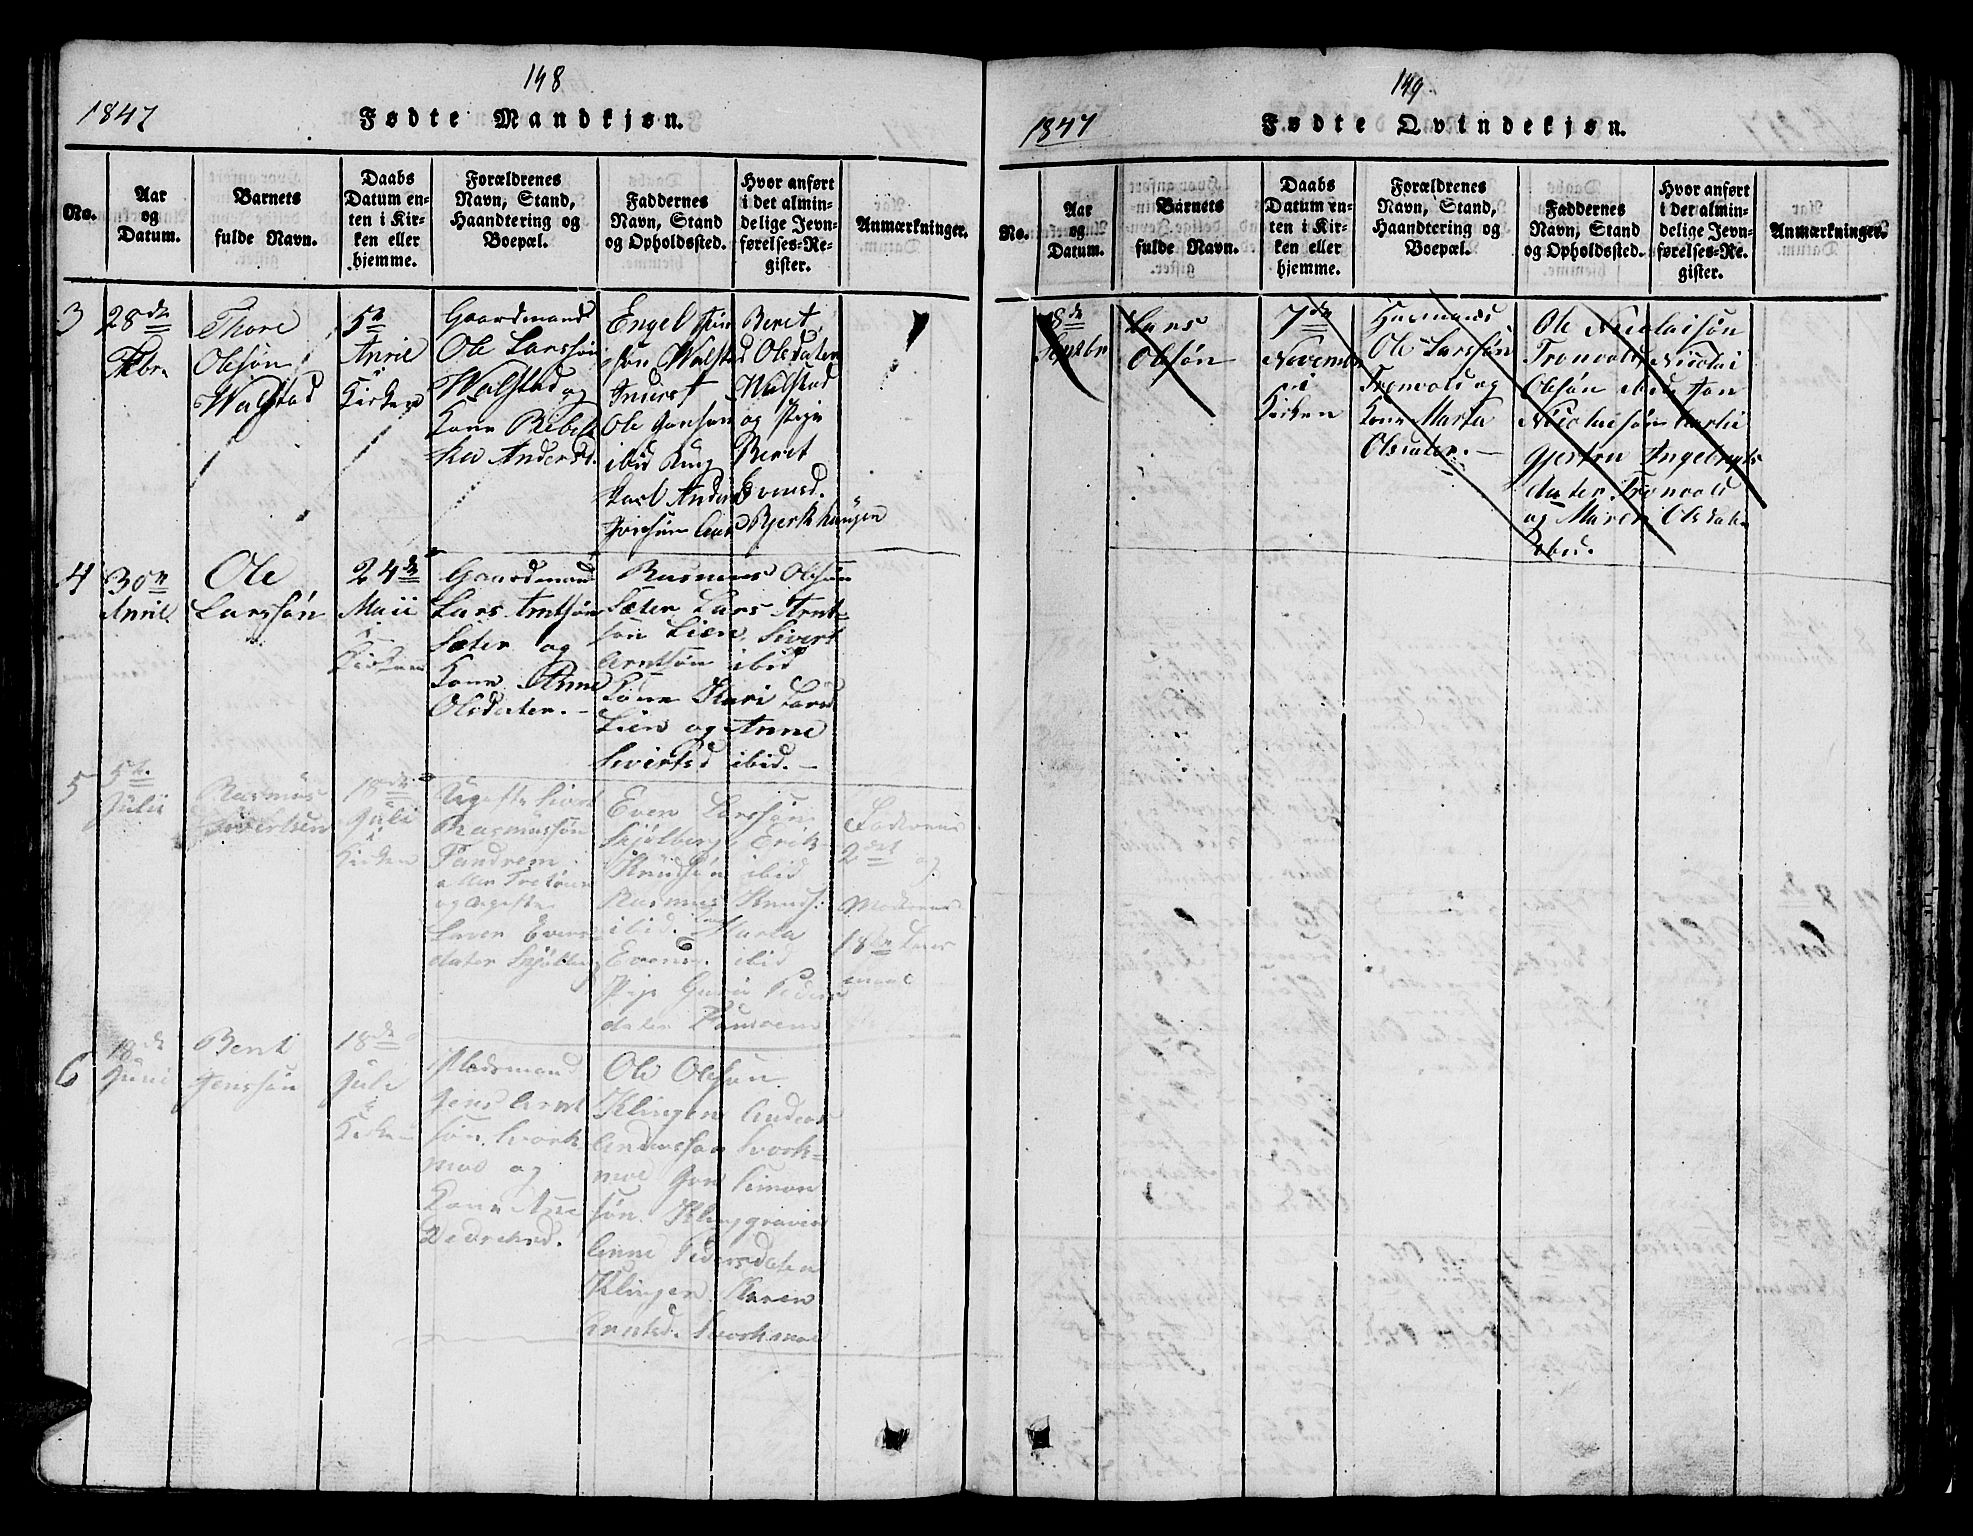 148
1847
Fødte Mandkjøn.
No.
Aar
og
Datum.
Barnets
fulde Navn.
Daabs
Datum en-
ten i Kir-
ken eller
hjemme.
Forældrenes
Navn, Stand,
Haandtering og
Boepæl.
Faddernes
Navn, Stand
og Opholdssted.
Hvor anført
i det almin-
delige Jevn-
førelses-Re-
gister.
Anmærkninger.
3
28de
Febr.
Thore
Olesøn
Walstad
5te
April
i
Kirken
Gaardmand
Ole Larssøn
Walstad og
Kone Rebek
ka Andersd.
Engel
Beret
søn Walstad Olsdater
Walstad
Ole Jonsøn og Pige
ibid Beret
Karl Anders Evensd.
Bjerkhaugen
4
30te
April
Ole
Larssøn
24de
Maii
i
Kirken
Gaardmand
Lars Arntsøn
Sæter og
Kone Anne
Olsdater.
Rasmus Olesøn
Sæter Lars Arnt-
søn Lien, Sivert
Arntsøn ibid
Kone Kari Larsd
Lien og Anne
Sivertsd ibid.
5
5te
Julii
Rasmus
Sivertsen
18de
Juli
i
Kirken
Ugifte Sivert
Rasmussøn
og ugifte
Karen Evens
dater Skjølberg
Even Larssøn
Skjølberg Erik
Knudsøn ibid
Rasmus Knuds.
ibid. Marta
Evensd. ibid
Pige Guru Peders
dater
Faderens
2det og
Moderens
18
6
18de
Juni
Bent
Jenssøn
18de
Juli
i
Kirken
Pladsmand
Jens Arnt
søn, Svork
moe og
Kone Ane
Ole Olesøn
Klingen Anders
Anderssøn Svork-
moe Jon Simon
søn. Klinggravin
Anne Pedersdater
Klingen Karen
Arntsd. Svorkmoe
149
1847
Fødte Qvindekjøn.
No.
Aar
og
Datum.
Barnets
fulde Navn.
Daabs
Datum en-
ten i Kir-
ken eller
hjemme.
Forældrenes
Navn, Stand,
Haandtering og
Boepæl.
Faddernes
Navn, Stand
og Opholdssted.
Hvor anført
i det almin-
delige Jevn-
førelses-Re-
gister.
Anmærkninger.
8de
Septbr
Lars
Olsøn
7de
Novembr
i
Kirken
Huusmand
Ole Larssøn
Tronvold og
Kone Marta
Olsdater.
Ole Nicolaisøn
Tronvold, Nicolai
Olsøn ibid Jon
Nicolaisøn
Gjertru Ingebrigts
dater Tronvold
og Maren Olsdater
ibid.